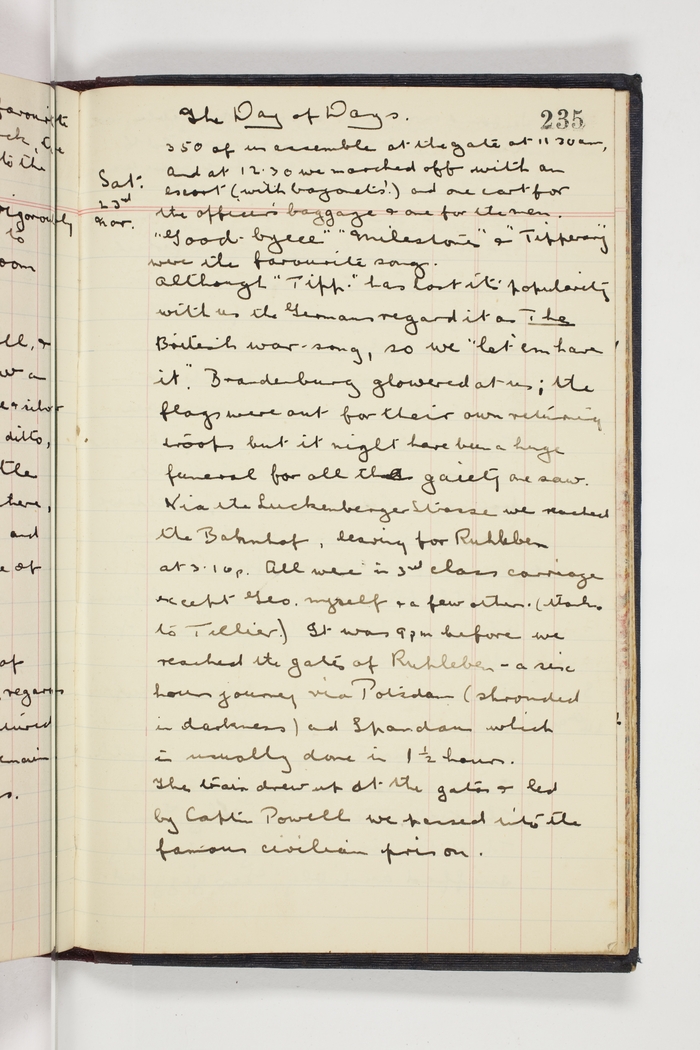 The Day of Days.
235
Sat.
23rd
Nov.
350 of us assemble at the gate at 11 30 am,
and at 12.30 we marched off with an
escort (with bayonets!) and one cart for
the officers baggage & one for the men.
"Good-byeee" "Milestones" & "Tipperary"
were the favourite song.
Although "Tipp." has lost its popularity
with us the Germans regard it as The
British war-song, so we "let 'em have
it". Brandenburg glowered at us; the
flags were out for their own returning
troops but it might have been a huge
funeral for all the gaiety one saw.
Via the Luckenberger Strasse we reached
the Bahnhof, leaving for Ruhleben
at 3.10p. All were in 3rd class carriage
except Geo. myself & a few others. (thanks
to Tellier.) It was 9pm before we
reached the gates of Ruhleben - a six
hours journey via Potsdam (shrouded
in darkness) and Spandau which
is usually done in 1½ hours.
The train drew up at the gates & led
by Captn Powell we passed into the
famous civilian prison.
favourite
to the
rigorously
to
oom
ll, &
w a
ditto,
ttle
there,
and
e of
of
regards
emain